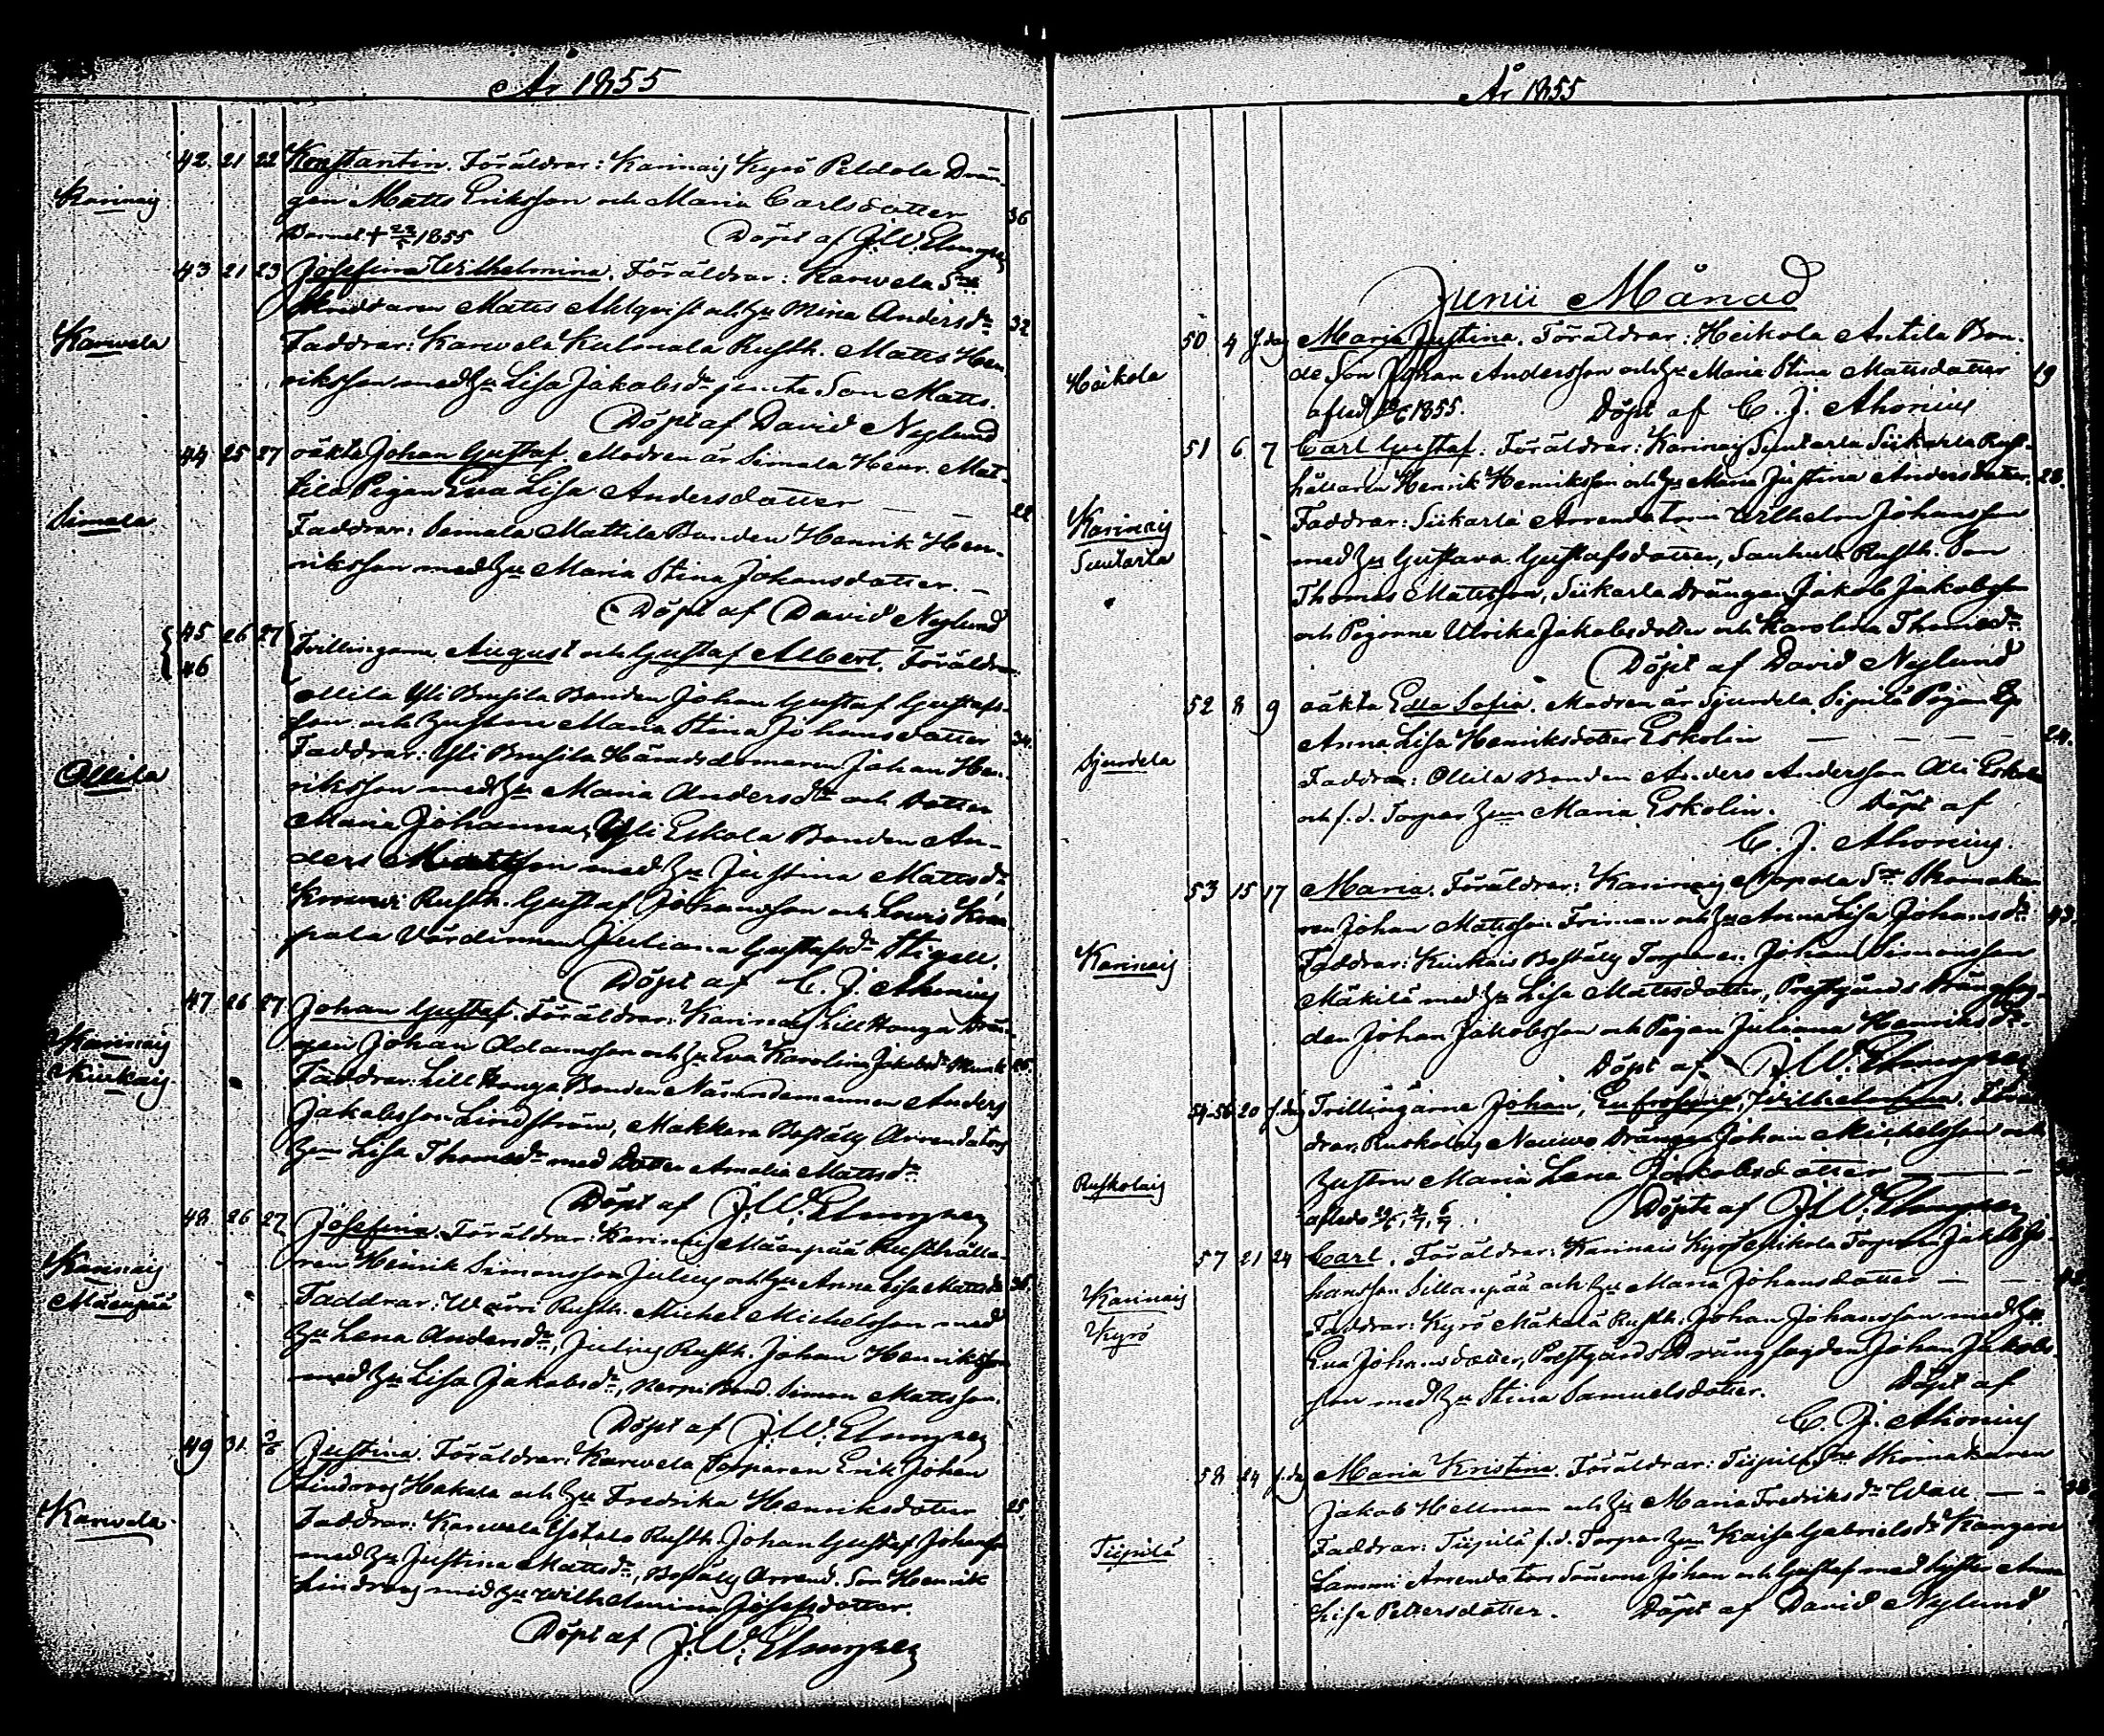 År 1855
Karinais 42. 21 22 Konstantin. Föräldrar: Karinais Kyrö Peldola Drän-
gen Matts Eriksson och Maria Carlsdotter 36
Barnet † 1855 Döpt af J.W. Elmgren
Karwela 43 21 23 Josefina Wilhelmina. Föräldrar: Karwela Sn
Skräddaren Matts Ahlqvist och hu Mina Andersdr 32
Faddrar: Karwela Kulmala Rusth. Matts Hen-
riksson med hu Lisa Jakobsdr jemte Son Matts.
Döpt af David Nylund
Simala 44 25 27 oäkta Johan Gustaf. Modren är Simala Henr. Mat-
tila Pigan Eva Lisa Andersdotter — — 22
Faddrar: Simala Mattila Bonden Henrik Hen-
riksson med hu Maria Stina Johansdotter. —
Döpt af David Nylund
45 26 27 Tvillingarna August och Gustaf Albert. Föräldrar
46
Ollila Yli Bussila Bonden Johan Gustaf Gustafs-
son och hustrun Maria Stina Johansdotter 34.
Ollila Faddrar: Yli Bussila Häradsdomaren Johan Hen-
riksson med hu Maria Andersdr och Dotter
Maria Johanna, Yli Eskola Bonden An-
ders Mattsson med hu Justina Mattsdr
Krouwi Rusth. Gustaf Johansson och Lewis
pala Värdinnan Juliana Gustafsdr Stigell.
Döpt af C. J. Ahonius
Karinais Kiukais 47 26 27 Johan Gustaf. Föräldrar: Karinais Lill Honga Drän-
gen Johan Adamsson och hu Eva Karolina Jakobsdr Munk 25.
Faddrar: Lill Honga Bonden Nämndemannen Anders
Jakobsson Lindström, Makkera Boställs Arrendators
hun Lisa Thomasdr med Dotter Amalia Mattsdr
Döpt af J.W. Elmgren
Karinais Mäenpää 48 26 27 Josefina. Föräldrar: Karinais Mäenpää Rusthålla-
ren Henrik Simonsson Julius och hu Anna Lisa Mattsdr 36.
Faddrar: Wärri Rusth. Michel Michelsson med
hu Lena Andersdr, Julius Rusth. Johan Henriksson
med hu Lisa Jakobsdr, Bond. Simon Mattsson.
Döpt af J.W. Elmgren
Karwela 49 31. 2/6 Justina. Föräldrar: Karwela Torparen Erik Johan
Lindroos Hakala och hu Fredrika Henriksdotter 25
Faddrar: Karwela Rusth. Johan Gustaf Johansson
med hu Justina Mattsdr, Boställs Arrend. Son Henrik
Lindroos med hu Wilhelmina Josefsdotter.
Döpt af J.W. Elmgren
År 1855
Junii Månad
Heikola 50 4 f.dag Maria Justina. Föräldrar: Heikola Antila Bon-
de Son Johan Andersson och hu Maria Stina Mattsdotter 19
afled 1855. Döpt af C. J. Ahonius
51 6 7 Carl Gustaf. Föräldrar: Karinais Suutarla Siikarla Rust-
hållaren Henrik Henriksson och hu Maria Justina Andersdotter. 28.
Karinais Suutarla Faddrar: Siikarla Arrendatorn Wilhelm Johansson
med hu Gustava Gustafsdotter, Rusth. Son
Thomas Mattsson, Siikarla Drängen Jakob Jakobsson
och Pigorna Ulrika Jakobsdotter och Karolina Thomasdr
Döpt af David Nylund
52 8 9 oäkta Edla Sofia. Modren är Sjundela Sipilä Pigan
Anna Lisa Henriksdotter Eskolin — — — — 24.
Sjundela Faddrar: Ollila Bonden Anders Andersson Ali Eskola
och f. d. Torpar hun Maria Eskolin. Döpt af
C. J. Ahonius.
53 15 17 Maria. Föräldrar: Karinais Sn Skomaka-
ren Johan Mattsson Friman och hu Anna Lisa Johansdr 43.
Karinais Faddrar: Kiukais Boställs Torparen Johan Simonsson
Mäkilä med hu Lisa Mattsdotter, Prestgårds Drängfog-
den Johan Jakobsson och Pigan Juliana Henriksdr.
Döpt af J.W. Elmgren
54-56 20 f.dag Trillingarne Johan, Eufrosyne, Wilhelmina. Föräl-
drar: Ruskolais Nauwo Drängen Johan Michelsson och
Ruskolais hustrun Maria Lena Jakobsdotter — —
afledo Döpte af J.W. Elmgren
57 21 24 Carl. Föräldrar: Karinais Kyrö Torparen Jakob Jo-
hansson Sillanpää och hu Maria Johansdotter — —
Karinais Kyrö Faddrar: Kyrö Mäkelä Rusth. Johan Johansson med hu
Eva Johansdotter, Prestgårds Drängfogden Johan Jakobs-
son med hu Stina Samuelsdotter. Döpt af
C. J. Ahonius
58 24 f.dag Maria Kristina. Föräldrar: Tiipilä Sn Skomakaren
Jakob Hellman och hu Maria Fredriksdr Wall — —
Tiipilä Faddrar: Tiipilä f.d. Torpar hun Kaisa Gabrielsdr Kangare
Lammi Arrendators Sönerne Johan och Gustaf med Syster Anna
Lisa Pettersdotter. Döpt af David Nylund